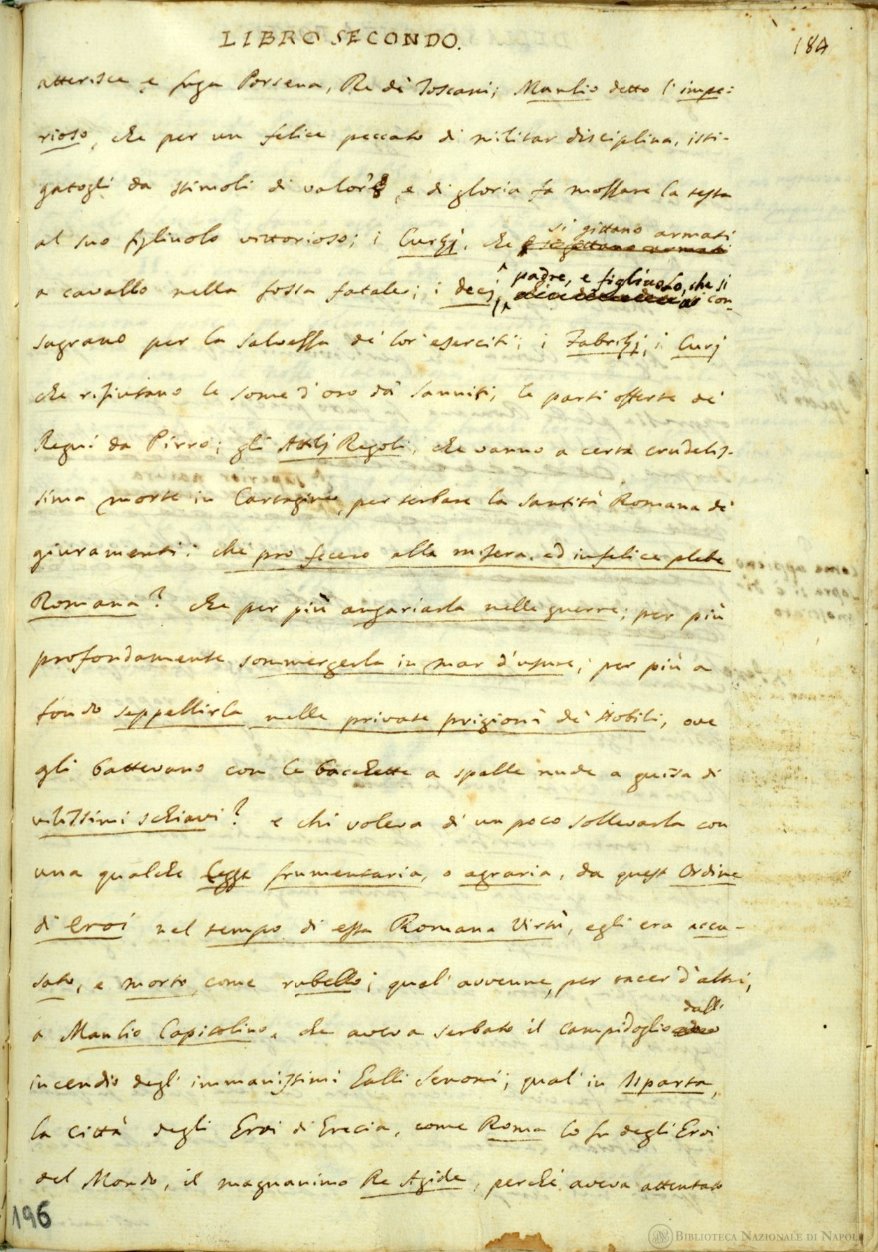 LIBRO SECONDO.
184
atterisce, e fuga Porsena, Re de' Toscani; Manlio detto l'impe-
rioso, che per un felice peccato di militar disciplina, isti-
gatogli da stimoli di valore, e di gloria fa mozzare la testa
al suo figliuolo vittorioso; i Curzj, che si gittano armati
a cavallo nella fossa fatale; i Decj, padre, e figliuolo, che si con-
sagrano per la salvezza de' lor' eserciti; i Fabrizj, i Curj
che rifiutano le some d'oro da' Sanniti, le parti offerte de'
Regni da Pirro; gli Attilj Regoli, che vanno a certa crudelis-
sima morte in Cartagine, per serbare la santità Romana de'
giuramenti: che pro fecero alla misera, ed infelice plebe
Romana? che per più angariarla nelle guerre; per più
profondamente sommergerla in mar d'usure; per più a
fondo seppellirla nelle private prigioni de' Nobili, ove
gli battevano con le bacchette a spalle nude a guisa di
vilissimi schiavi? e chi voleva di un poco sollevarla con
una qualche legge frumentaria, o agraria, da quest'Ordine
di Eroi nel tempo di essa Romana Virtù, egli era accu-
sato, e morto come rubello; qual' avvenne, per tacer d'altri,
a Manlio Capitolino, che aveva serbato il Campidoglio dall'
incendio degl' immanissimi Galli Senoni; qual' in Isparta,
la città degli Eroi di Grecia, come Roma lo fu degli Eroi
del Mondo, il magnanimo Re Agide, perchè aveva attentato
196
BIBLIOTECA NAZIONALE DI NAPOLI